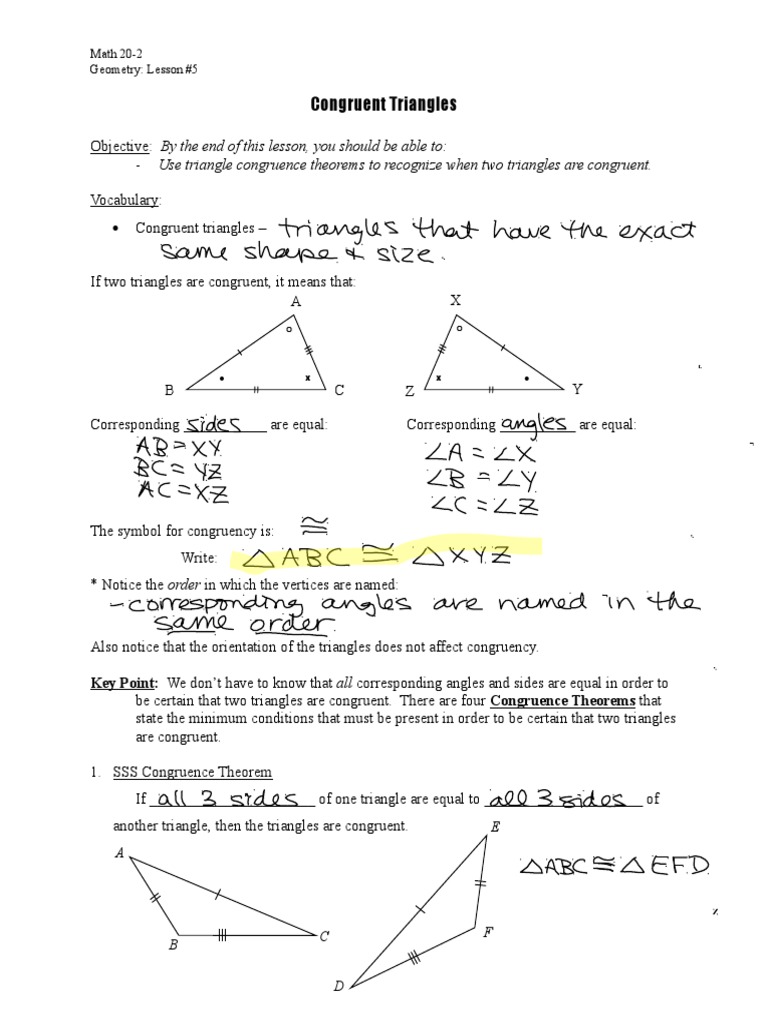 Math 20-2
Geometry: Lesson #5
Congruent Triangles
Objective: By the end of this lesson, you should be able to:
- Use triangle congruence theorems to recognize when two triangles are congruent.
Vocabulary:
• Congruent triangles – triangles that have the exact
same shape & size.
If two triangles are congruent, it means that:
A X
B C Z Y
Corresponding sides are equal: Corresponding angles are equal:
AB = XY ∠A = ∠X
BC = YZ ∠B = ∠Y
AC = XZ ∠C = ∠Z
The symbol for congruency is: ≅
Write: △ABC ≅ △XYZ
* Notice the order in which the vertices are named:
- corresponding angles are named in the
same order.
Also notice that the orientation of the triangles does not affect congruency.
Key Point: We don't have to know that all corresponding angles and sides are equal in order to
be certain that two triangles are congruent. There are four Congruence Theorems that
state the minimum conditions that must be present in order to be certain that two triangles
are congruent.
1. SSS Congruence Theorem
If all 3 sides of one triangle are equal to all 3 sides of
another triangle, then the triangles are congruent.
E
A
△ABC ≅ △EFD
B C F
D